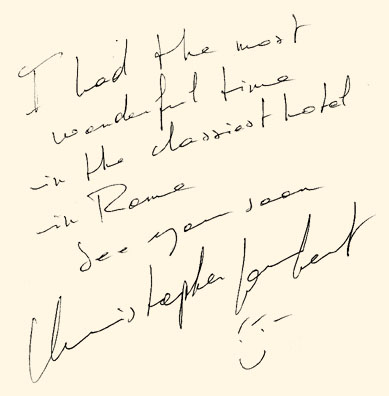 I had the most
wonderful time
in the classiest hotel
in Rome
See you soon
Christopher Lambert